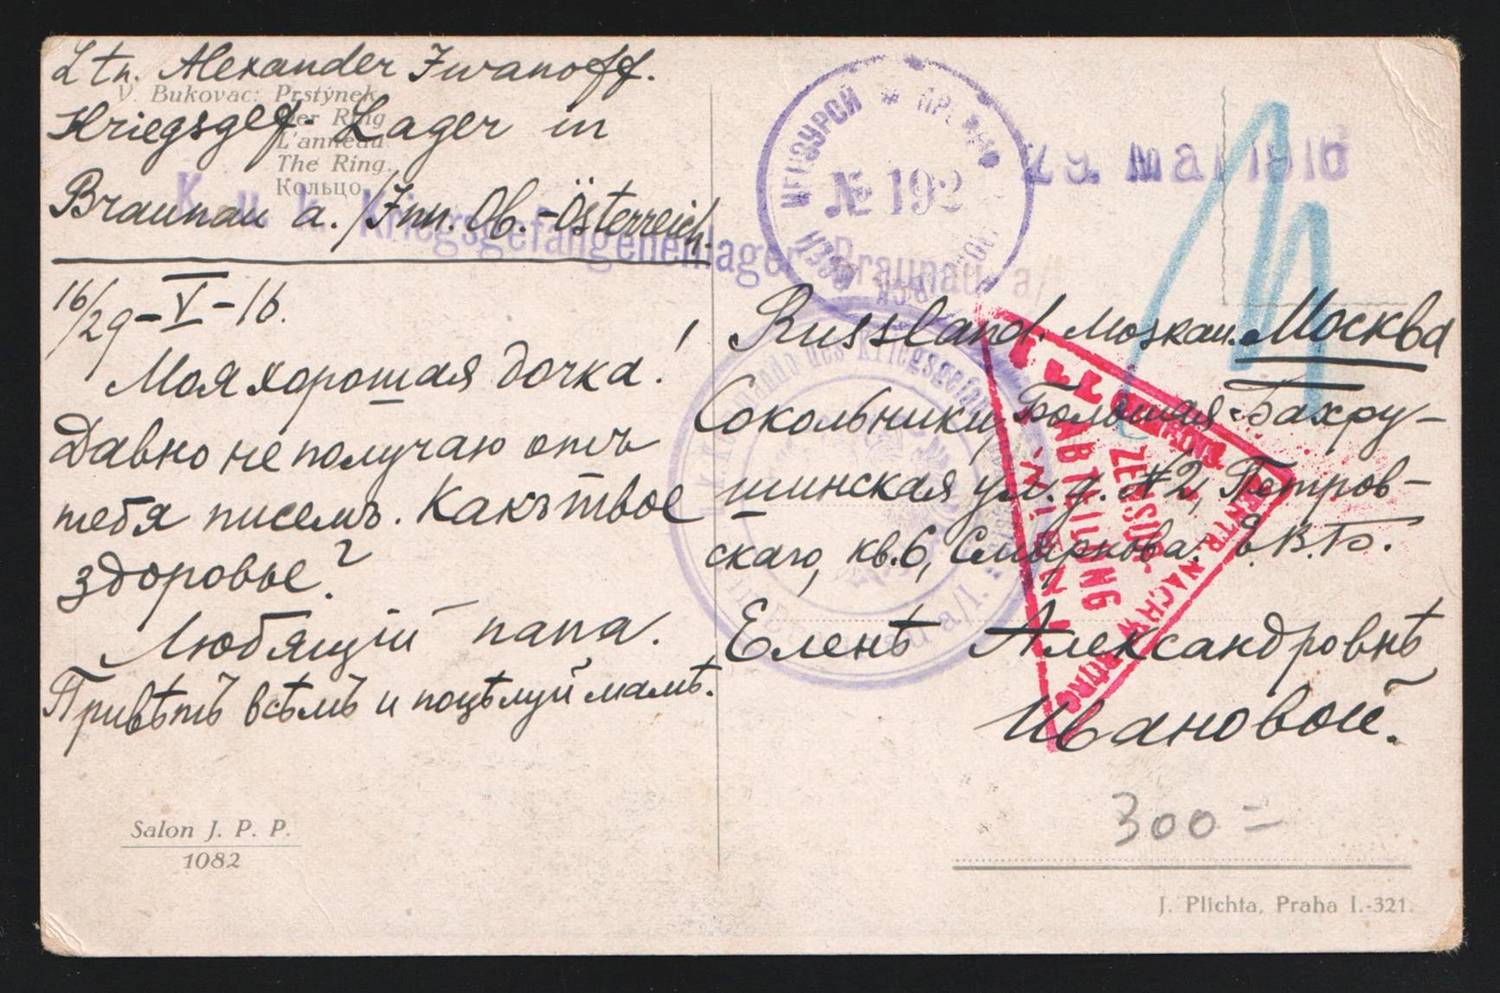 Ltn. Alexander Iwanoff.
Kriegsgef. Lager in
Braunau a./Inn. Ob.-Österreich.
V. Bukovac: Prstýnek
Der Ring
L'anneau
The Ring.
Кольцо.
K. u. k. Kriegsgefangenenlager Braunau a/
16/29-V-16.
Моя хорошая дочка!
Давно не получаю отъ
тебя писемъ. Какъ твое
здоровье?
Любящій папа.
Привѣтъ всѣмъ и поцѣлуй мамѣ.
Salon J. P. P.
1082
ЦЕНЗУРОЙ
№ 192
29. Mai 1916
Russland. Москаu. Москва
Сокольники, Большая Бахру-
шинская ул. д. №2, Петров-
скаго, кв. 6, Смирнова. Е.В.Б.
Еленѣ Александровнѣ
Ивановой.
K. u. K. Kommando des Kriegsgef
in Braunau a/I.
ZENTR. NACHW.
ZENSUR-
ABTEILUNG
WIEN
300=
J. Plichta, Praha I.-321.